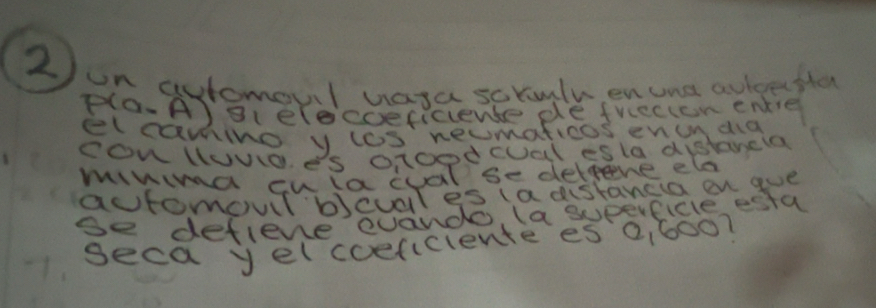 2) un automouil viaja 50Km/h en una autopista
pla. A) si el coeficiente de fricción entre
el camino y los neumaticos en un dia
con lluvia. es 0,100 cual es la distancia
minima en la cual se detiene el
automouil b) cual es la distancia en que
se detiene cuando la superficie esta
seca y el coeficiente es 0,600?